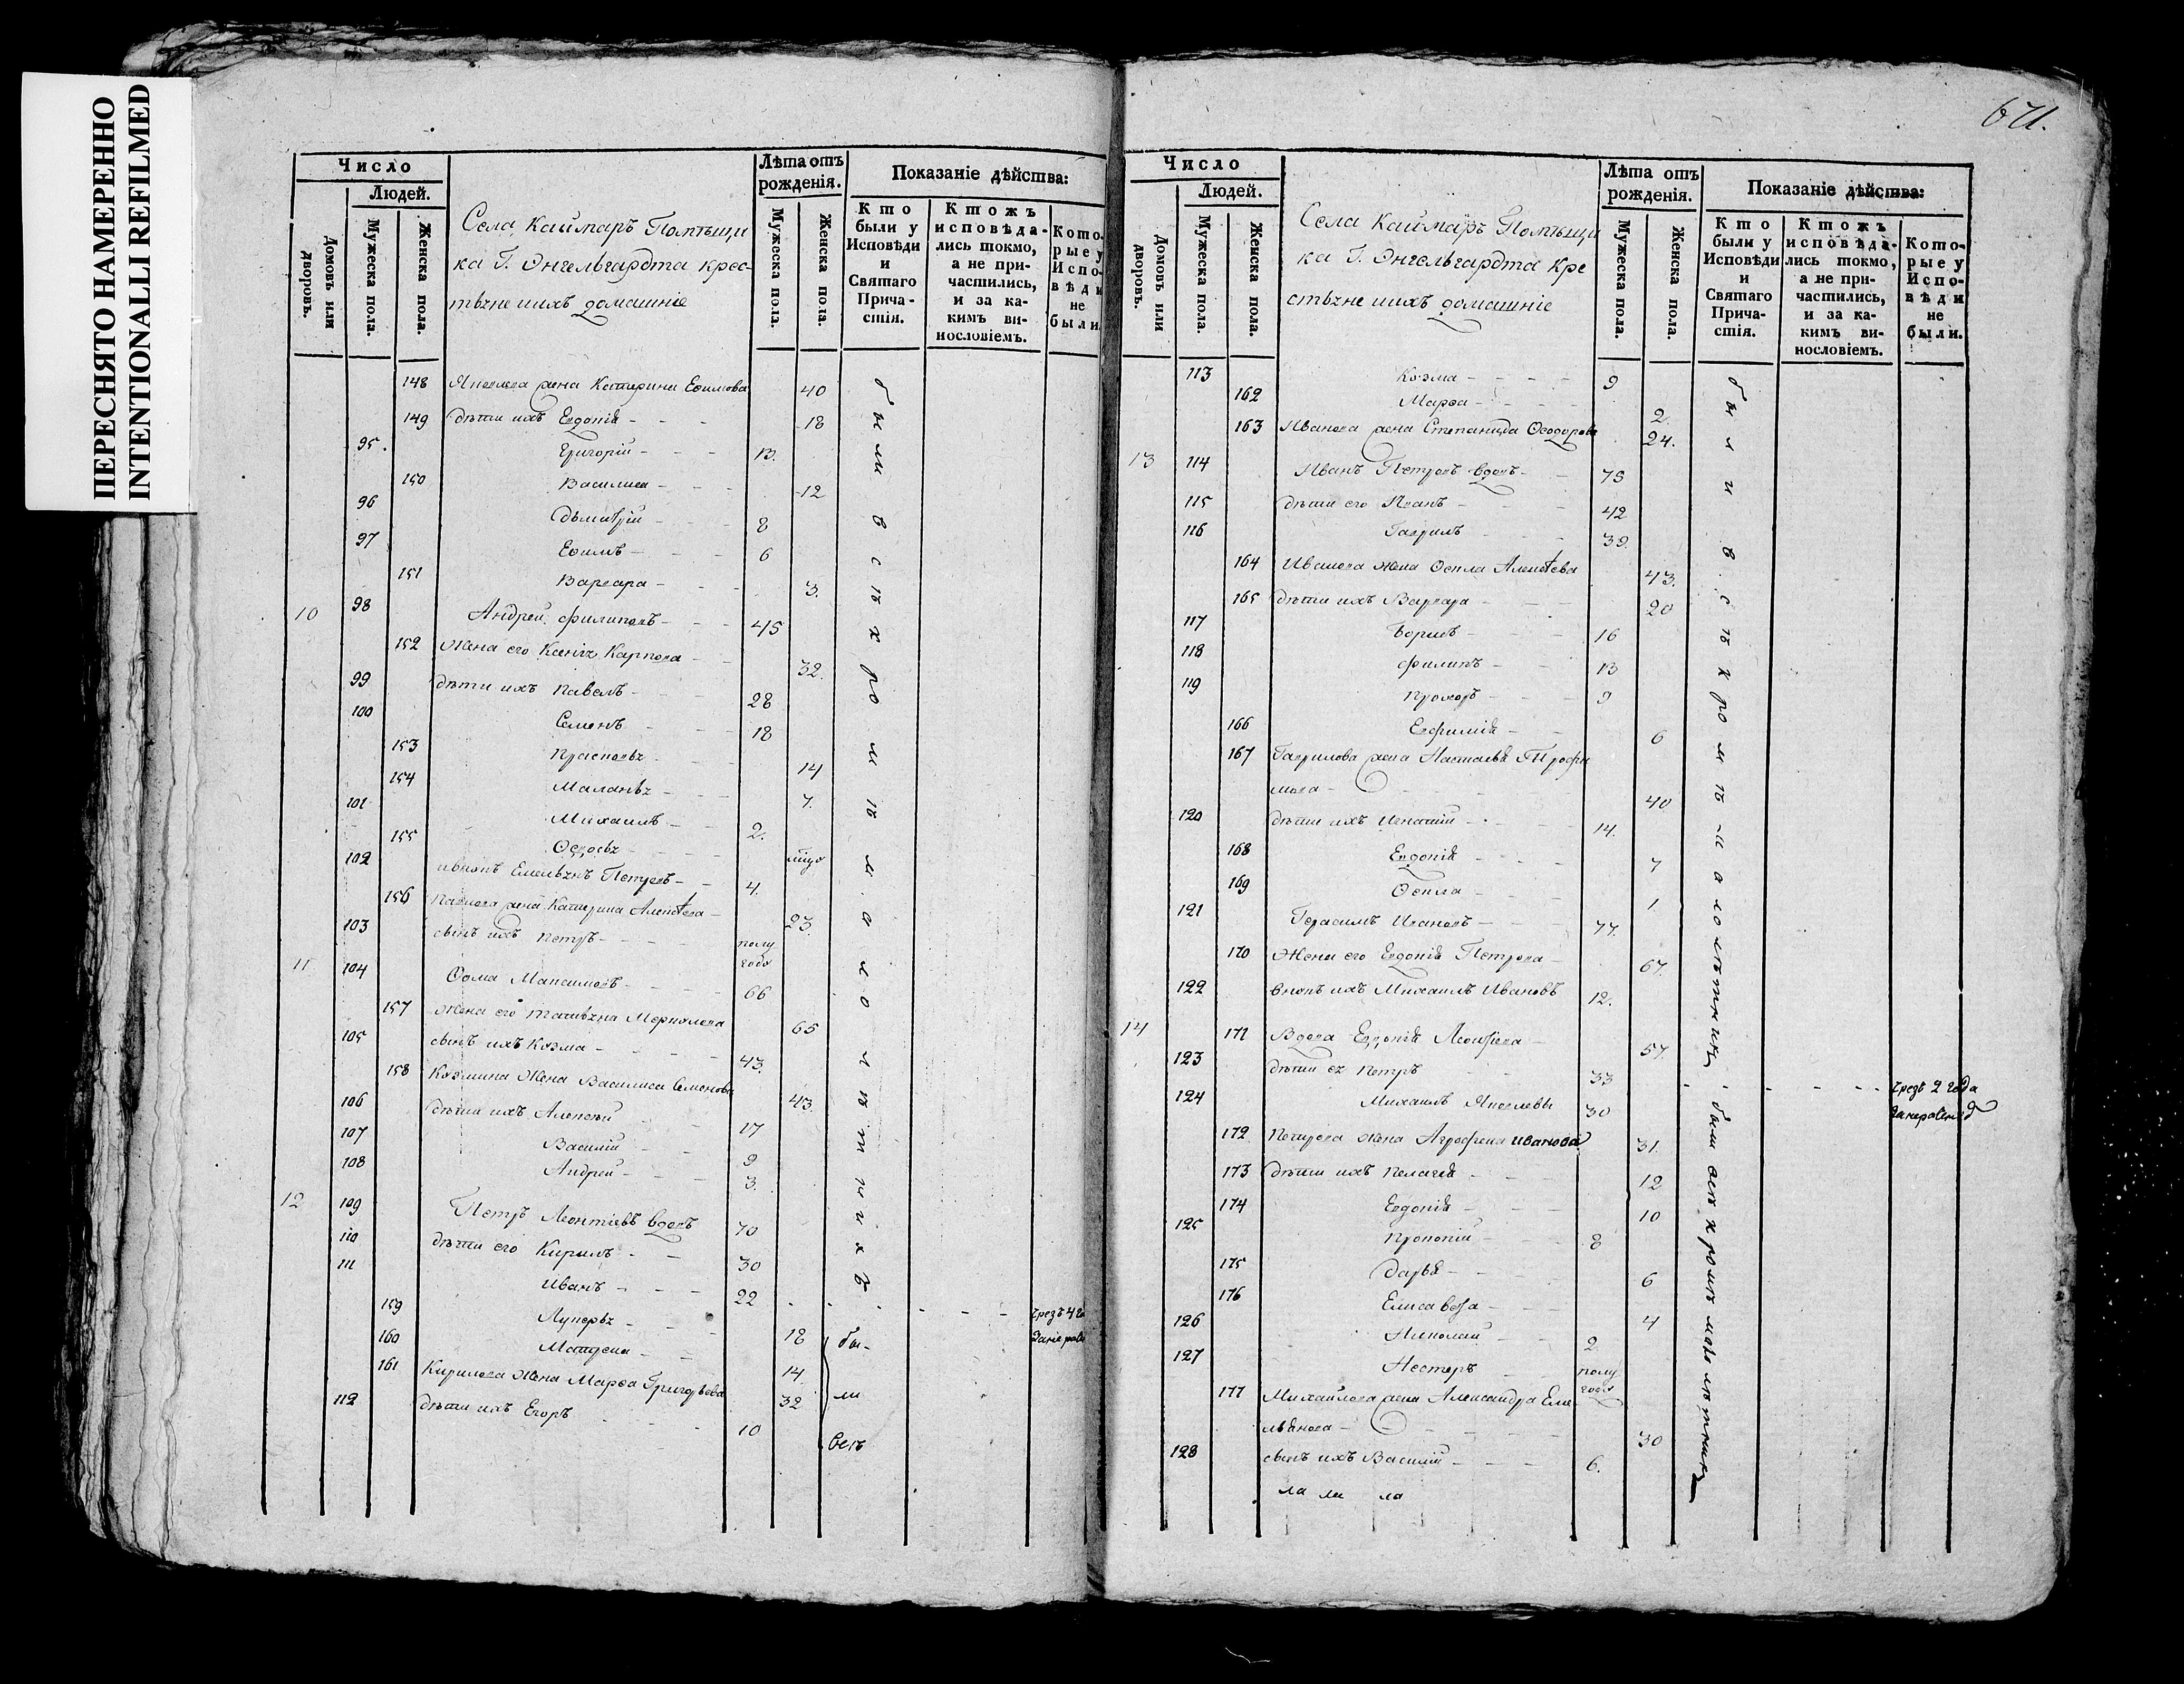 ПЕРЕСНЯТО НАМЕРЕННО
INTENTIONALLI REFILMED
Число
Людей.
Домовъ или дворовъ.
Мужеска пола.
Женска пола.
Села Каймаръ Помѣщи
ка Г. Энгельгардта крес-
тьяне ихъ домашніе
Лѣта отъ рожденія.
Мужеска пола.
Женска пола.
Показаніе дѣйства:
Кто были у Исповѣди и Святаго Причастія.
Ктожъ исповѣдались токмо, а не причастились, и за какимъ винословіемъ.
Которые у Исповѣди не были.
148 жена Катерина Ефимова 40
149 дѣти ихъ Евдокія - - - 18
95. Григорій - - - 13.
150 Василиса - - - 12
96 Дьмитрій - - - 8
97 Ефимъ - - - 6
151 Варвара - - - 3.
10 98 Андрей Филиповъ - - - 45
152 Жена его Карпова - - 32.
99 дѣти ихъ Павелъ - - - 28
100 Семенъ - - 18
153 - - - 14
154 - - 7.
101 Михаилъ - - 2.
155 - -
102 Петровъ - - 4.
156 Павлова жена Катерина - 23.
103 сынъ ихъ Петръ - - - полу года
11 104 Фома Максимовъ - - - 66
157 Жена его 65
105 сынъ ихъ Козма - - - 43.
158 Козмина Жена Василиса Семенова 43.
106 дѣти ихъ Алексѣй - - 17
107 Василій - - 9
108 Андрей - - 3.
12 109 Петръ Леонтіевъ вдовъ 70
110 дѣти его Кирилъ - - 30
111 Иванъ - - - 22 чрезъ 4
159 - - 18
160 Матрена - - 14
161 Кирилова Жена Марѳа Григорьева 32
112 дѣти ихъ Егоръ 10
были всѣ кромѣ малолѣтнихъ
бы-
ли
всѣ
671.
Число
Людей.
Домовъ или дворовъ.
Мужеска пола.
Женска пола.
Села Каймаръ Помѣщи
ка Г. Энгельгардта кре
стьяне ихъ домашніе
Лѣта отъ рожденія.
Мужеска пола.
Женска пола.
Показаніе дѣйства:
Кто были у Исповѣди и Святаго Причастія.
Ктожъ исповѣдались токмо, а не причастились, и за какимъ винословіемъ.
Которые у Исповѣди не были.
113 Козма - - - - 9
162 Марѳа - - - 2.
163 Иванова жена Степанида Ѳеодорова 24.
13 114 Иванъ Петровъ вдовъ - - 75
115 дѣти его Иванъ - - - 42
116 Гаврилъ - - - 39.
164 Иванова жена Ѳекла Алексѣева 43.
165 дѣти ихъ Варвара - - - 20
117 Борисъ - - - 16
118 Филипъ - - 13
119 Прохоръ - - 9
166 Евфимія - - 6
167 Гаврилова жена Настасья Трофи
мова - - - - 40
120 дѣти ихъ Игнатій - - - 14.
168 Евдокія - - - 7
169 Ѳекла - - - 1.
121 Герасимъ Ивановъ - - 77.
170 Жена его Евдокія Петрова - 67.
122 внукъ ихъ Михаилъ Ивановъ 12.
14 171 Вдова Евдокія - 57.
123 дѣти ея Петръ - - - 33 чрезъ 2 года
124 Михаилъ 30
172 Петрова жена Агрофена Иванова 31.
173 дѣти ихъ Пелагея - - 12
174 Евдокія - - - 10
125 Прокопій - - - 8
175 Дарья - - - 6
176 Елисавета - - - 4
126 Николай - - - 2.
127 Несторъ - - полу года
177 Михайлова жена Александра Еме
льянова - - - - 30
128 сынъ ихъ Василій - - - 6.
были всѣ кромѣ малолѣтнихъ
были всѣ кромѣ малолѣтнихъ